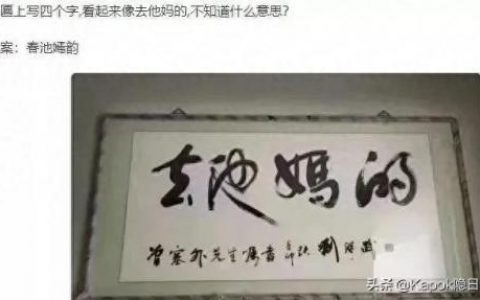 匾上写四个字,看起来像去他妈的,不知道什么意思?
案：春池嫣韵
去池媽的
头条 @Kapok隐日